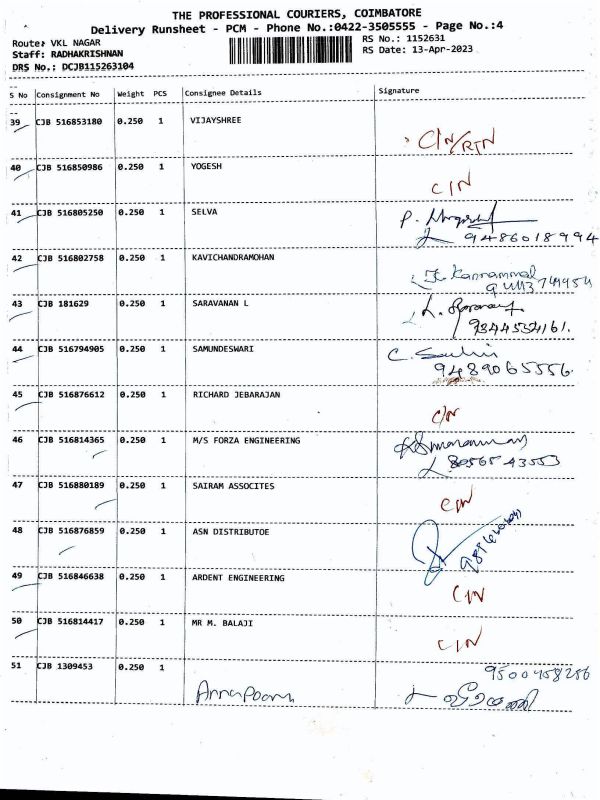 THE PROFESSIONAL COURIERS, COIMBATORE
Delivery Runsheet - PCM - Phone No.:0422-3505555 - Page No.:4
Route: VKL NAGAR
RS No.: 1152631
Staff: RADHAKRISHNAN
RS Date: 13-Apr-2023
DRS No.: DCJB115263104
S No Consignment No Weight PCS Consignee Details Signature
39 CJB 516853180 0.250 1 VIJAYSHREE
C/N/RTN
40 CJB 516850986 0.250 1 YOGESH
C/N
41 CJB 516805250 0.250 1 SELVA
P.
9486018994
42 CJB 516802758 0.250 1 KAVICHANDRAMOHAN
Kannammal
43 CJB 181629 0.250 1 SARAVANAN L
L.
9344534161.
44 CJB 516794905 0.250 1 SAMUNDESWARI
C.
9489065556.
45 CJB 516876612 0.250 1 RICHARD JEBARAJAN
C/N
46 CJB 516814365 0.250 1 M/S FORZA ENGINEERING
80565 43553
47 CJB 516880189 0.250 1 SAIRAM ASSOCITES
C/N
48 CJB 516876859 0.250 1 ASN DISTRIBUTOE
49 CJB 516846638 0.250 1 ARDENT ENGINEERING
C/N
50 CJB 516814417 0.250 1 MR M. BALAJI
C/N
51 CJB 1309453 0.250 1
9500458286
Annapoorni